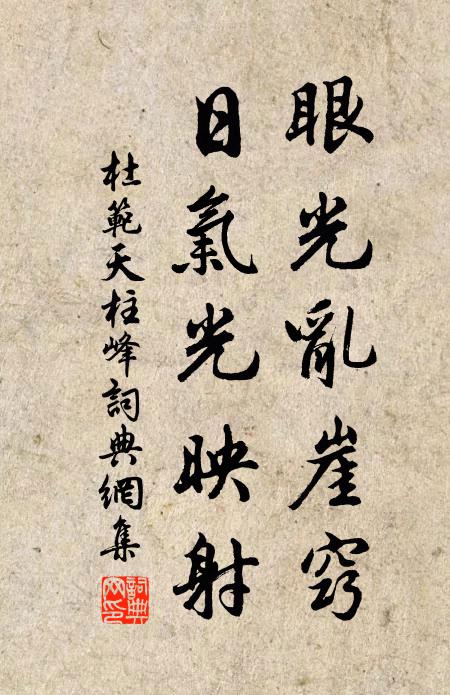 眼光亂崖窾
日氣光映射
杜範天柱峰詞典網集
詞典